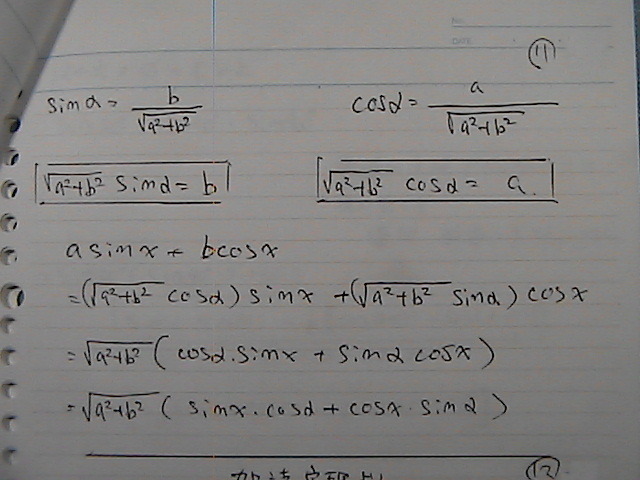 No.
DATE
(11)
sinα = b/√(a²+b²) cosα = a/√(a²+b²)
√(a²+b²) sinα = b √(a²+b²) cosα = a.
a sinx + bcosx
= (√(a²+b²) cosα) sinx + (√(a²+b²) sinα) cosx
= √(a²+b²) (cosα.sinx + sinα cosx)
= √(a²+b²) (sinx.cosα + cosx.sinα)
(12)